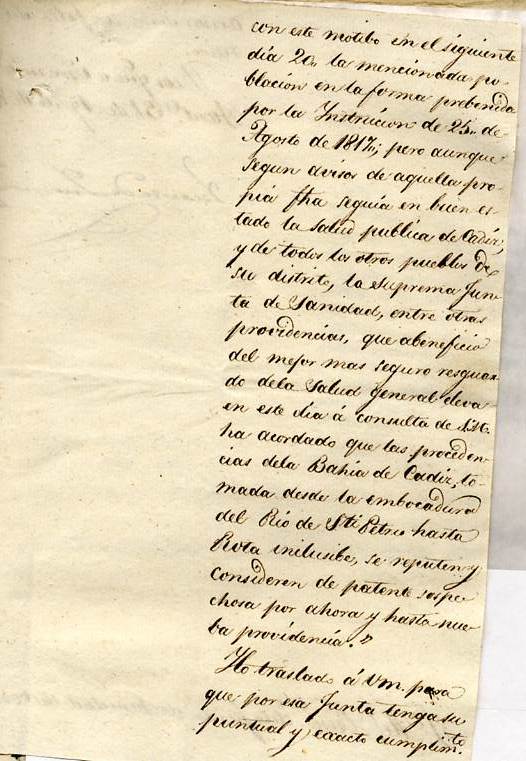 con este motibo en el siguiente
dia 20,, la mencionada po-
blacion en la forma prebenida
por la Instrucion de 25,, de
Agosto de 1817,; pero aunque
segun avisos de aquella pro-
pia fha seguia en buen es-
tado la salud publica de Cadiz,
y de todos los otros pueblos de
su distrito, la Suprema Jun-
ta de Sanidad, entre otras
providencias, que a beneficio
del mejor mas seguro resguar-
do dela Salud general
en este dia á consulta de S.M.
ha acordado que las proceden-
cias dela Bahia de Cadiz, to-
mada desde la embocadura
del Rio de Sti Petri hasta
Rota inclusibe, se reputen y
consideren de patente sospe
chosa por ahora y hasta nue-
ba providencia."
traslado á Vm. para
que por esa Junta tenga su
puntual y exacto cumplim.to